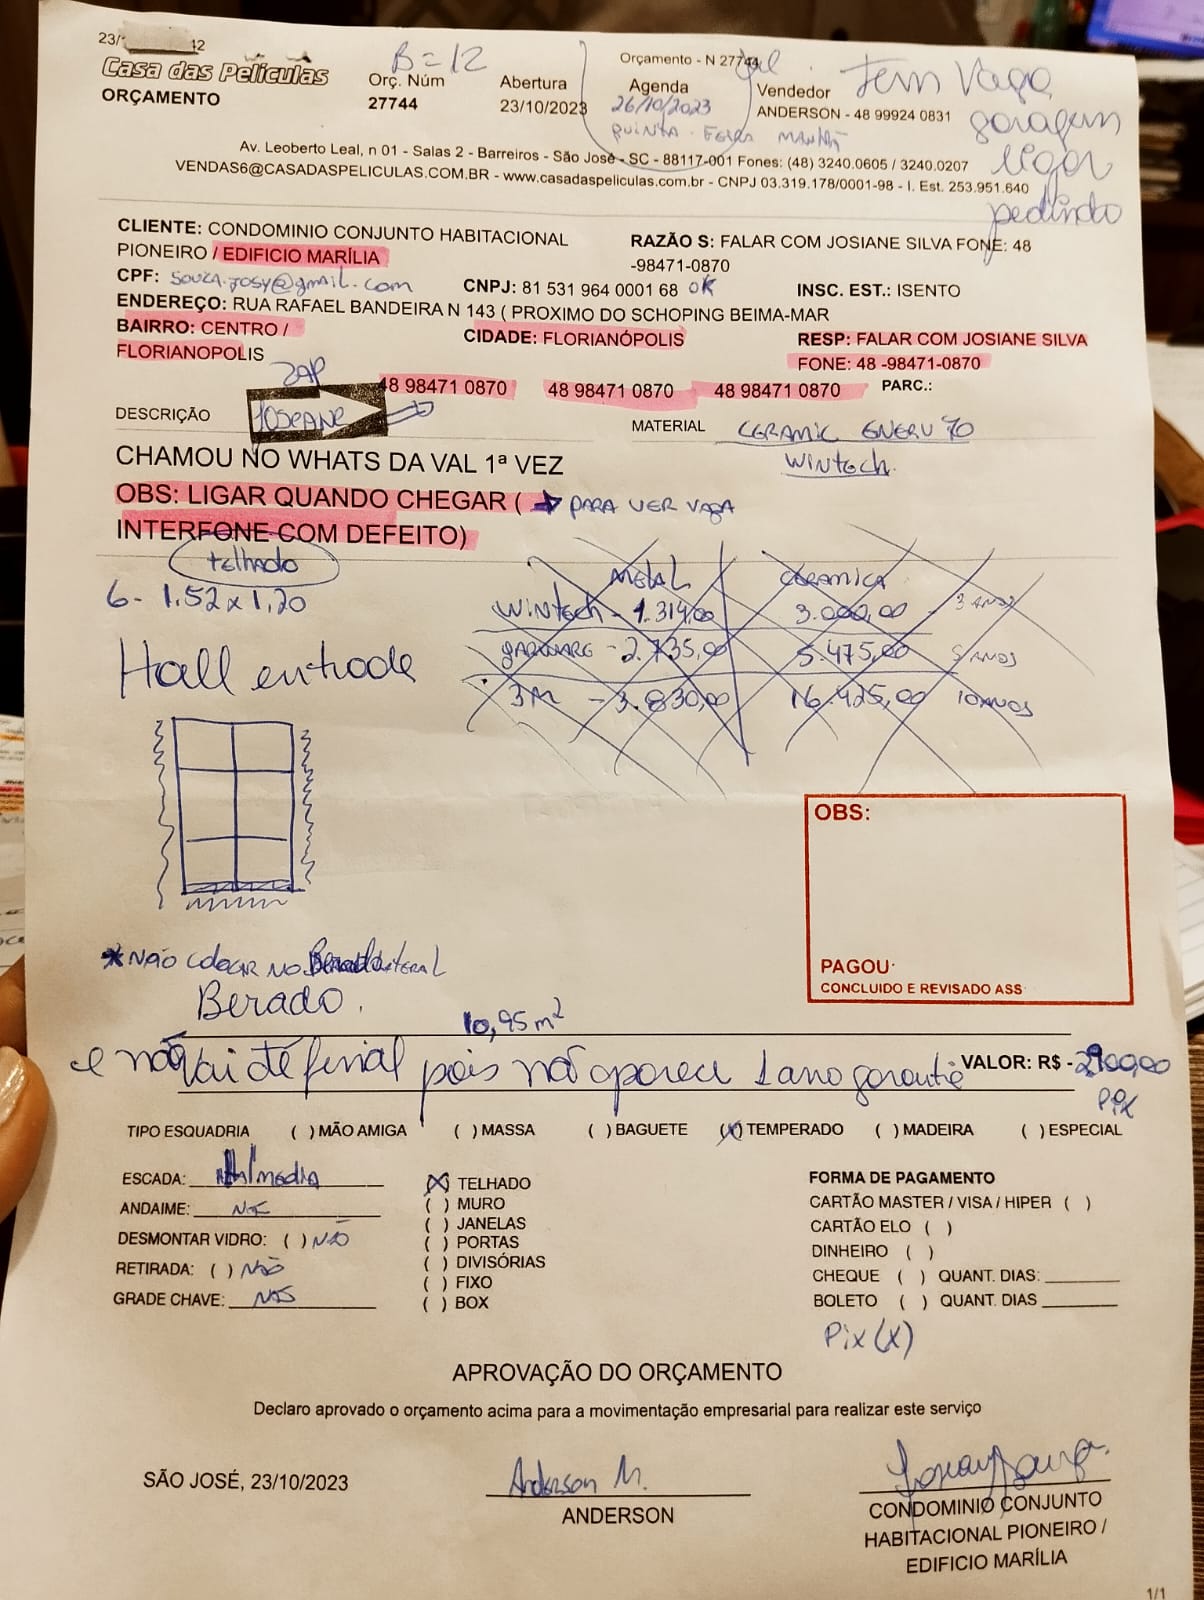 23/ 12
Casa das Películas
ORÇAMENTO
B=12
Orç. Núm
27744
Abertura
23/10/2023
Orçamento - N 27744
Agenda
26/10/2023
QUINTA-FEIRA MANHÃ
Vendedor
ANDERSON - 48 99924 0831
Tem Vaga
garagem
ligar
pedindo
Av. Leoberto Leal, n 01 - Salas 2 - Barreiros - São José - SC - 88117-001 Fones: (48) 3240.0605 / 3240.0207
VENDAS6@CASADASPELICULAS.COM.BR - www.casadaspeliculas.com.br - CNPJ 03.319.178/0001-98 - I. Est. 253.951.640
CLIENTE: CONDOMINIO CONJUNTO HABITACIONAL
PIONEIRO / EDIFICIO MARÍLIA
RAZÃO S: FALAR COM JOSIANE SILVA FONE: 48
-98471-0870
CPF: SOUZA.JOSY@gmail.com
CNPJ: 81 531 964 0001 68 OK
INSC. EST.: ISENTO
ENDEREÇO: RUA RAFAEL BANDEIRA N 143 ( PROXIMO DO SCHOPING BEIMA-MAR
BAIRRO: CENTRO /
FLORIANOPOLIS
CIDADE: FLORIANÓPOLIS
RESP: FALAR COM JOSIANE SILVA
FONE: 48 -98471-0870
ZAP
48 98471 0870 48 98471 0870 48 98471 0870 PARC.:
DESCRIÇÃO
JOSEANE
MATERIAL CERAMIC ENERV 70
WINTECH.
CHAMOU NO WHATS DA VAL 1ª VEZ
OBS: LIGAR QUANDO CHEGAR ( → PARA VER VAGA
INTERFONE COM DEFEITO)
telhado
6- 1.52 x 1,20
Hall entrada
METAL CERAMICA
WINTECH - 1.314,00 3.000,00 - 3 ANOS
- 2.735,00 5.475,00 5 ANOS
3M - 3.830,00 16.425,00 10 ANOS
OBS:
PAGOU:
CONCLUIDO E REVISADO ASS
* NÃO COLOCAR NO LATERAL
Berado.
10,95 m²
e não vai até final pois não aparece 1 ano garantia
VALOR: R$ - 2900,00
Pix
TIPO ESQUADRIA ( ) MÃO AMIGA ( ) MASSA ( ) BAGUETE (X) TEMPERADO ( ) MADEIRA ( ) ESPECIAL
ESCADA: media
ANDAIME:
DESMONTAR VIDRO: ( ) NÃO
RETIRADA: ( ) NÃO
GRADE CHAVE: NÃO
(X) TELHADO
( ) MURO
( ) JANELAS
( ) PORTAS
( ) DIVISÓRIAS
( ) FIXO
( ) BOX
FORMA DE PAGAMENTO
CARTÃO MASTER / VISA / HIPER ( )
CARTÃO ELO ( )
DINHEIRO ( )
CHEQUE ( ) QUANT. DIAS:
BOLETO ( ) QUANT. DIAS
Pix (X)
APROVAÇÃO DO ORÇAMENTO
Declaro aprovado o orçamento acima para a movimentação empresarial para realizar este serviço
SÃO JOSÉ, 23/10/2023
Anderson M.
ANDERSON
CONDOMINIO CONJUNTO
HABITACIONAL PIONEIRO /
EDIFICIO MARÍLIA
1/1